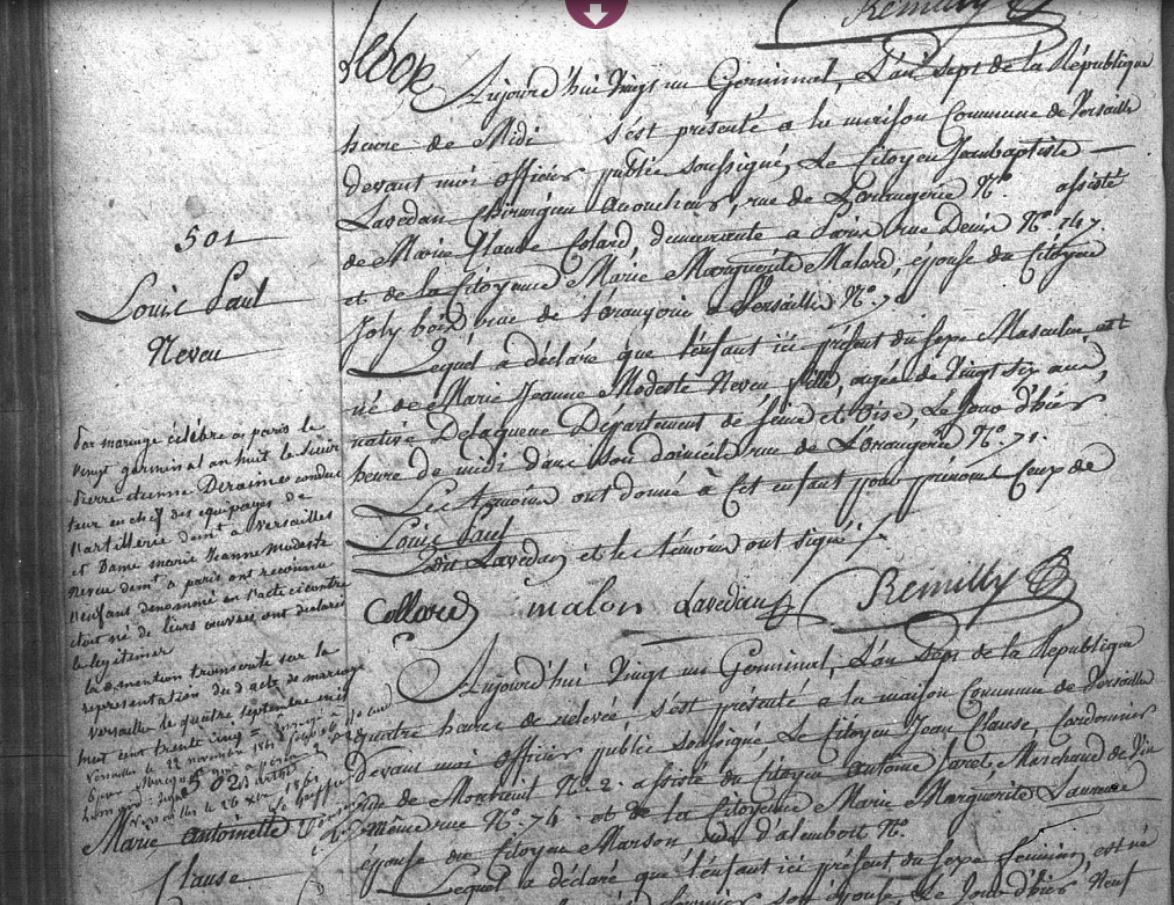 Remilly
Aujourd'hui Vingt un Germinal, L'an Sept de la République
heure de Midi s'est présenté a la maison Commune de Versaille
devant moi officier public soussigné, Le Citoyen Jeanbaptiste
Lavedan Chirurgien Accoucheur, rue de L'orangerie N°. assisté
de Marie Claude Colard, demeurante a Paris rue Denis N°. 747.
et de la Citoyenne Marie Marguerite Malard, épouse du Citoyen
Joly bois rue de l'orangerie a Versailles N°. 70
Lequel a déclaré que l'enfant ici présent du sexe Masculin est
né de Marie Jeanne Modeste Neveu fille, agée de Vingt six ans,
native Delaqueue Département de Seine et Oise, Le Jour d'hier
heure de midi dans son domicile rue de L'orangerie N°. 71.
Les témoins ont donné à Cet enfant pour prénoms Ceux de
Louis Paul
Ledit Lavedan et les témoins ont signé
Collard malon Lavedan Remilly
501
Louis Paul
Neveu
Par mariage célébré a paris le
vingt germinal an huit le Sieur
Pierre etienne Deraime conduc
teur en chef des equipages de
l'artillerie demt a versailles
et Dame marie Jeanne modeste
neveu demt a paris ont reconnu
l'enfant denommé en l'acte cicontre
etant né de leurs œuvres ont declaré
le legitimer
la mention transcrite sur la
représentation dud acte de mariage
versailles le quatre septembre mil
huit cent trente cinq
Aujourd'hui Vingt un Germinal, L'an Sept de la République
quatre heures de relevée, s'est présenté a la maison Commune de Versaille
devant moi officier public soussigné, Le Citoyen Jean Clause, Cordonnier
rue de Montreuil N°. 2. assisté du Citoyen Antoine Marchand de Vin
même rue N°. 74. et de la Citoyenne Marie Marguerite Laurence
épouse du Citoyen Marson rue d'alembert N°.
Lequel a déclaré que l'enfant ici présent du sexe féminin, est né
son épouse, Le Jour d'hier Neuf
502
Marie Antoinette
Clause